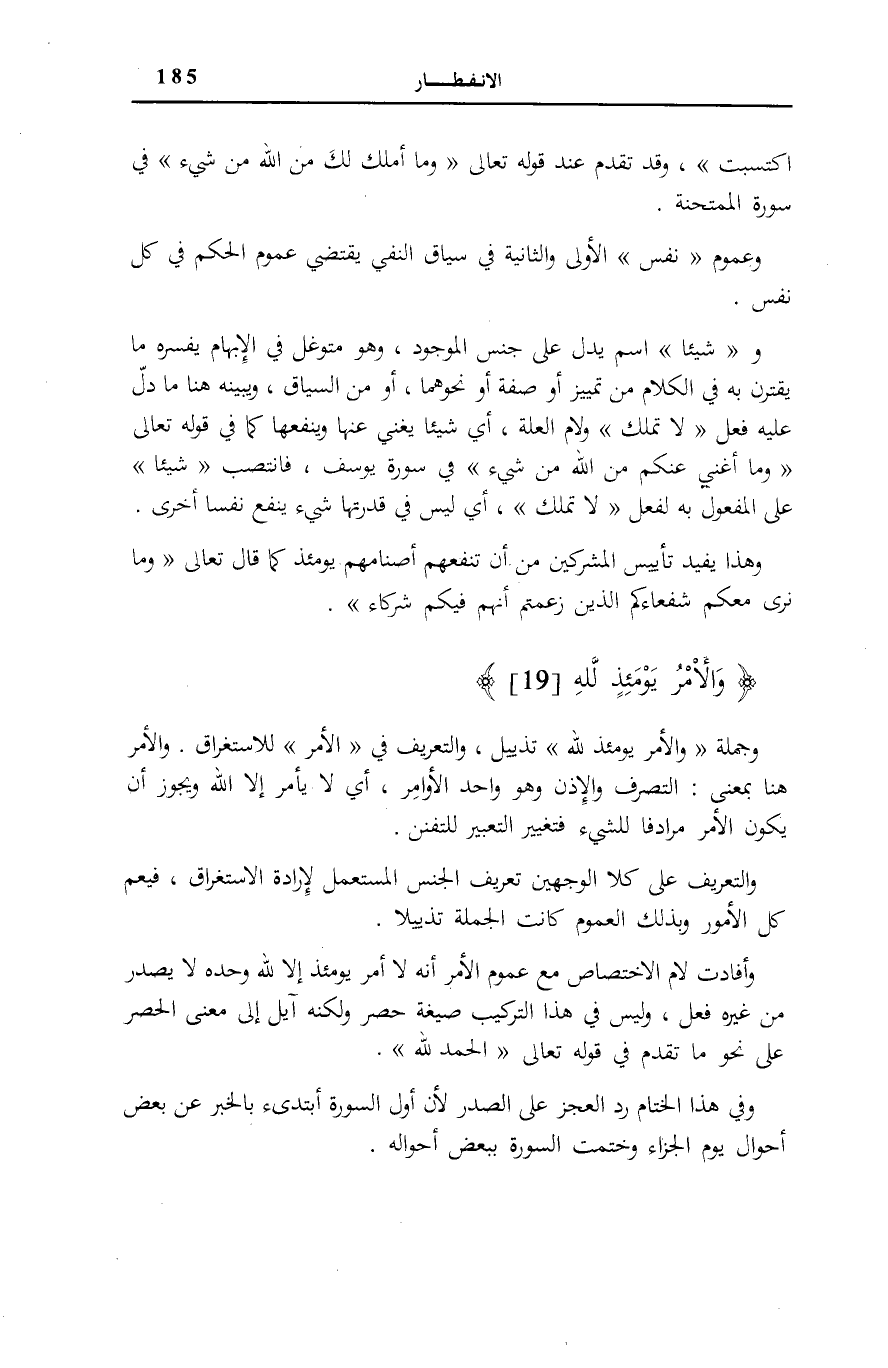 185 الانفطار
اكتسبت » ، وقد تقدم عند قوله تعالى « وما أملك لكَ من الله من شيء » في
سورة الممتحنة .
وعموم « نفس » الأولى والثانية في سياق النفي يقتضي عموم الحكم في كل
نفس .
و « شيئا » اسم يدل على جنس الموجود ، وهو متوغل في الإبهام يفسره ما
يقترن به في الكلام من تمييز أو صفة أو نحوهما ، أو من السياق ، ويبينه هنا ما دلّ
عليه فعل « لا تملك » ولام العلة ، أي شيئا يغني عنها وينفعها كما في قوله تعالى
« وما أغني عنكم من الله من شيء » في سورة يوسف ، فانتصب « شيئا »
على المفعول به لفعل « لا تملك » ، أي ليس في قدرتها شيء ينفع نفسا أخرى .
وهذا يفيد تأييس المشركين من أن تنفعهم أصنامهم يومئذ كما قال تعالى « وما
نرى معكم شفعاءكم الذين زعمتم أنهم فيكم شركاء » .
﴿ وَالْأَمْرُ يَوْمَئِذٍ لَّلهِ [19] ﴾
وجملة « والأمر يومئذ لله » تذييل ، والتعريف في « الأمر » للاستغراق . والأمر
هنا بمعنى : التصرف والإذن وهو واحد الأوامِر ، أي لا يأمر إلا الله ويجوز أن
يكون الأمر مرادفا للشيء فتغيير التعبير للتفنن .
والتعريف على كلا الوجهين تعريف الجنس المستعمل لإرادة الاستغراق ، فيعم
كل الأمور وبذلك العموم كانت الجملة تذييلا .
وأفادت لام الاختصاص مع عموم الأمر أنه لا أمر يومئذ إلا لله وحده لا يصدر
من غيره فعل ، وليس في هذا التركيب صيغة حصر ولكنه آيل إلى معنى الحصر
على نحو ما تقدم في قوله تعالى « الحمد لله » .
وفي هذا الختام رد العجز على الصدر لأن أول السورة أبتدىء بالخبر عن بعض
أحوال يوم الجزاء وختمت السورة ببعض أحواله .